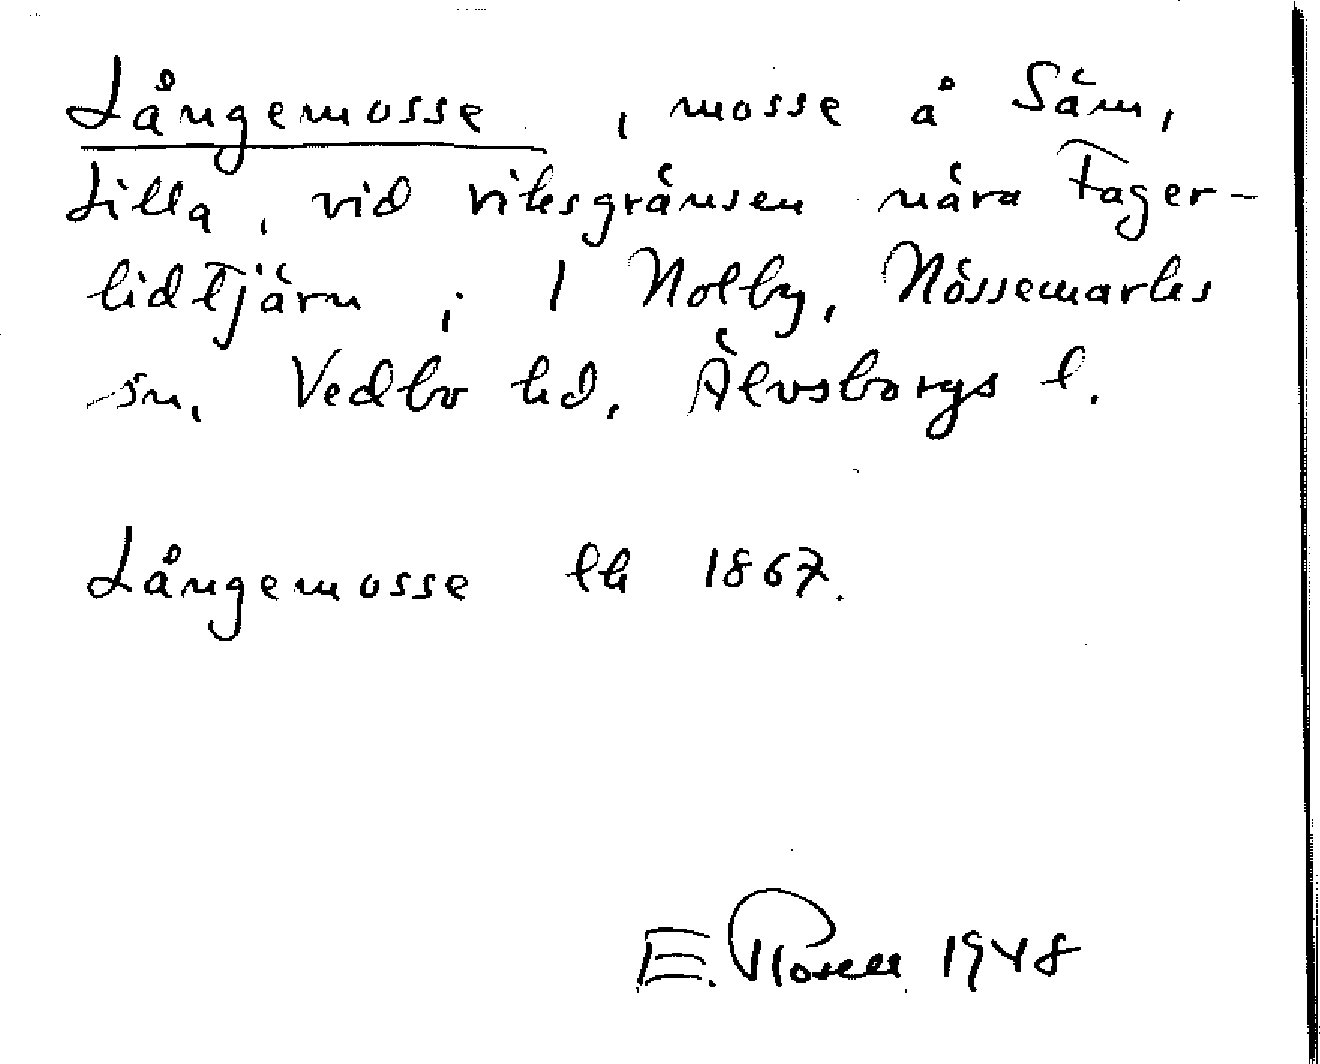 Långemosse , mosse å Säm,
Lilla, vid riksgränsen nära Fager-
lidtjärn , i Nolby, Nössemarks
sn, Vedbo hd, Älvsborgs l.
Långemosse lk 1867.
E. Rosell 1948